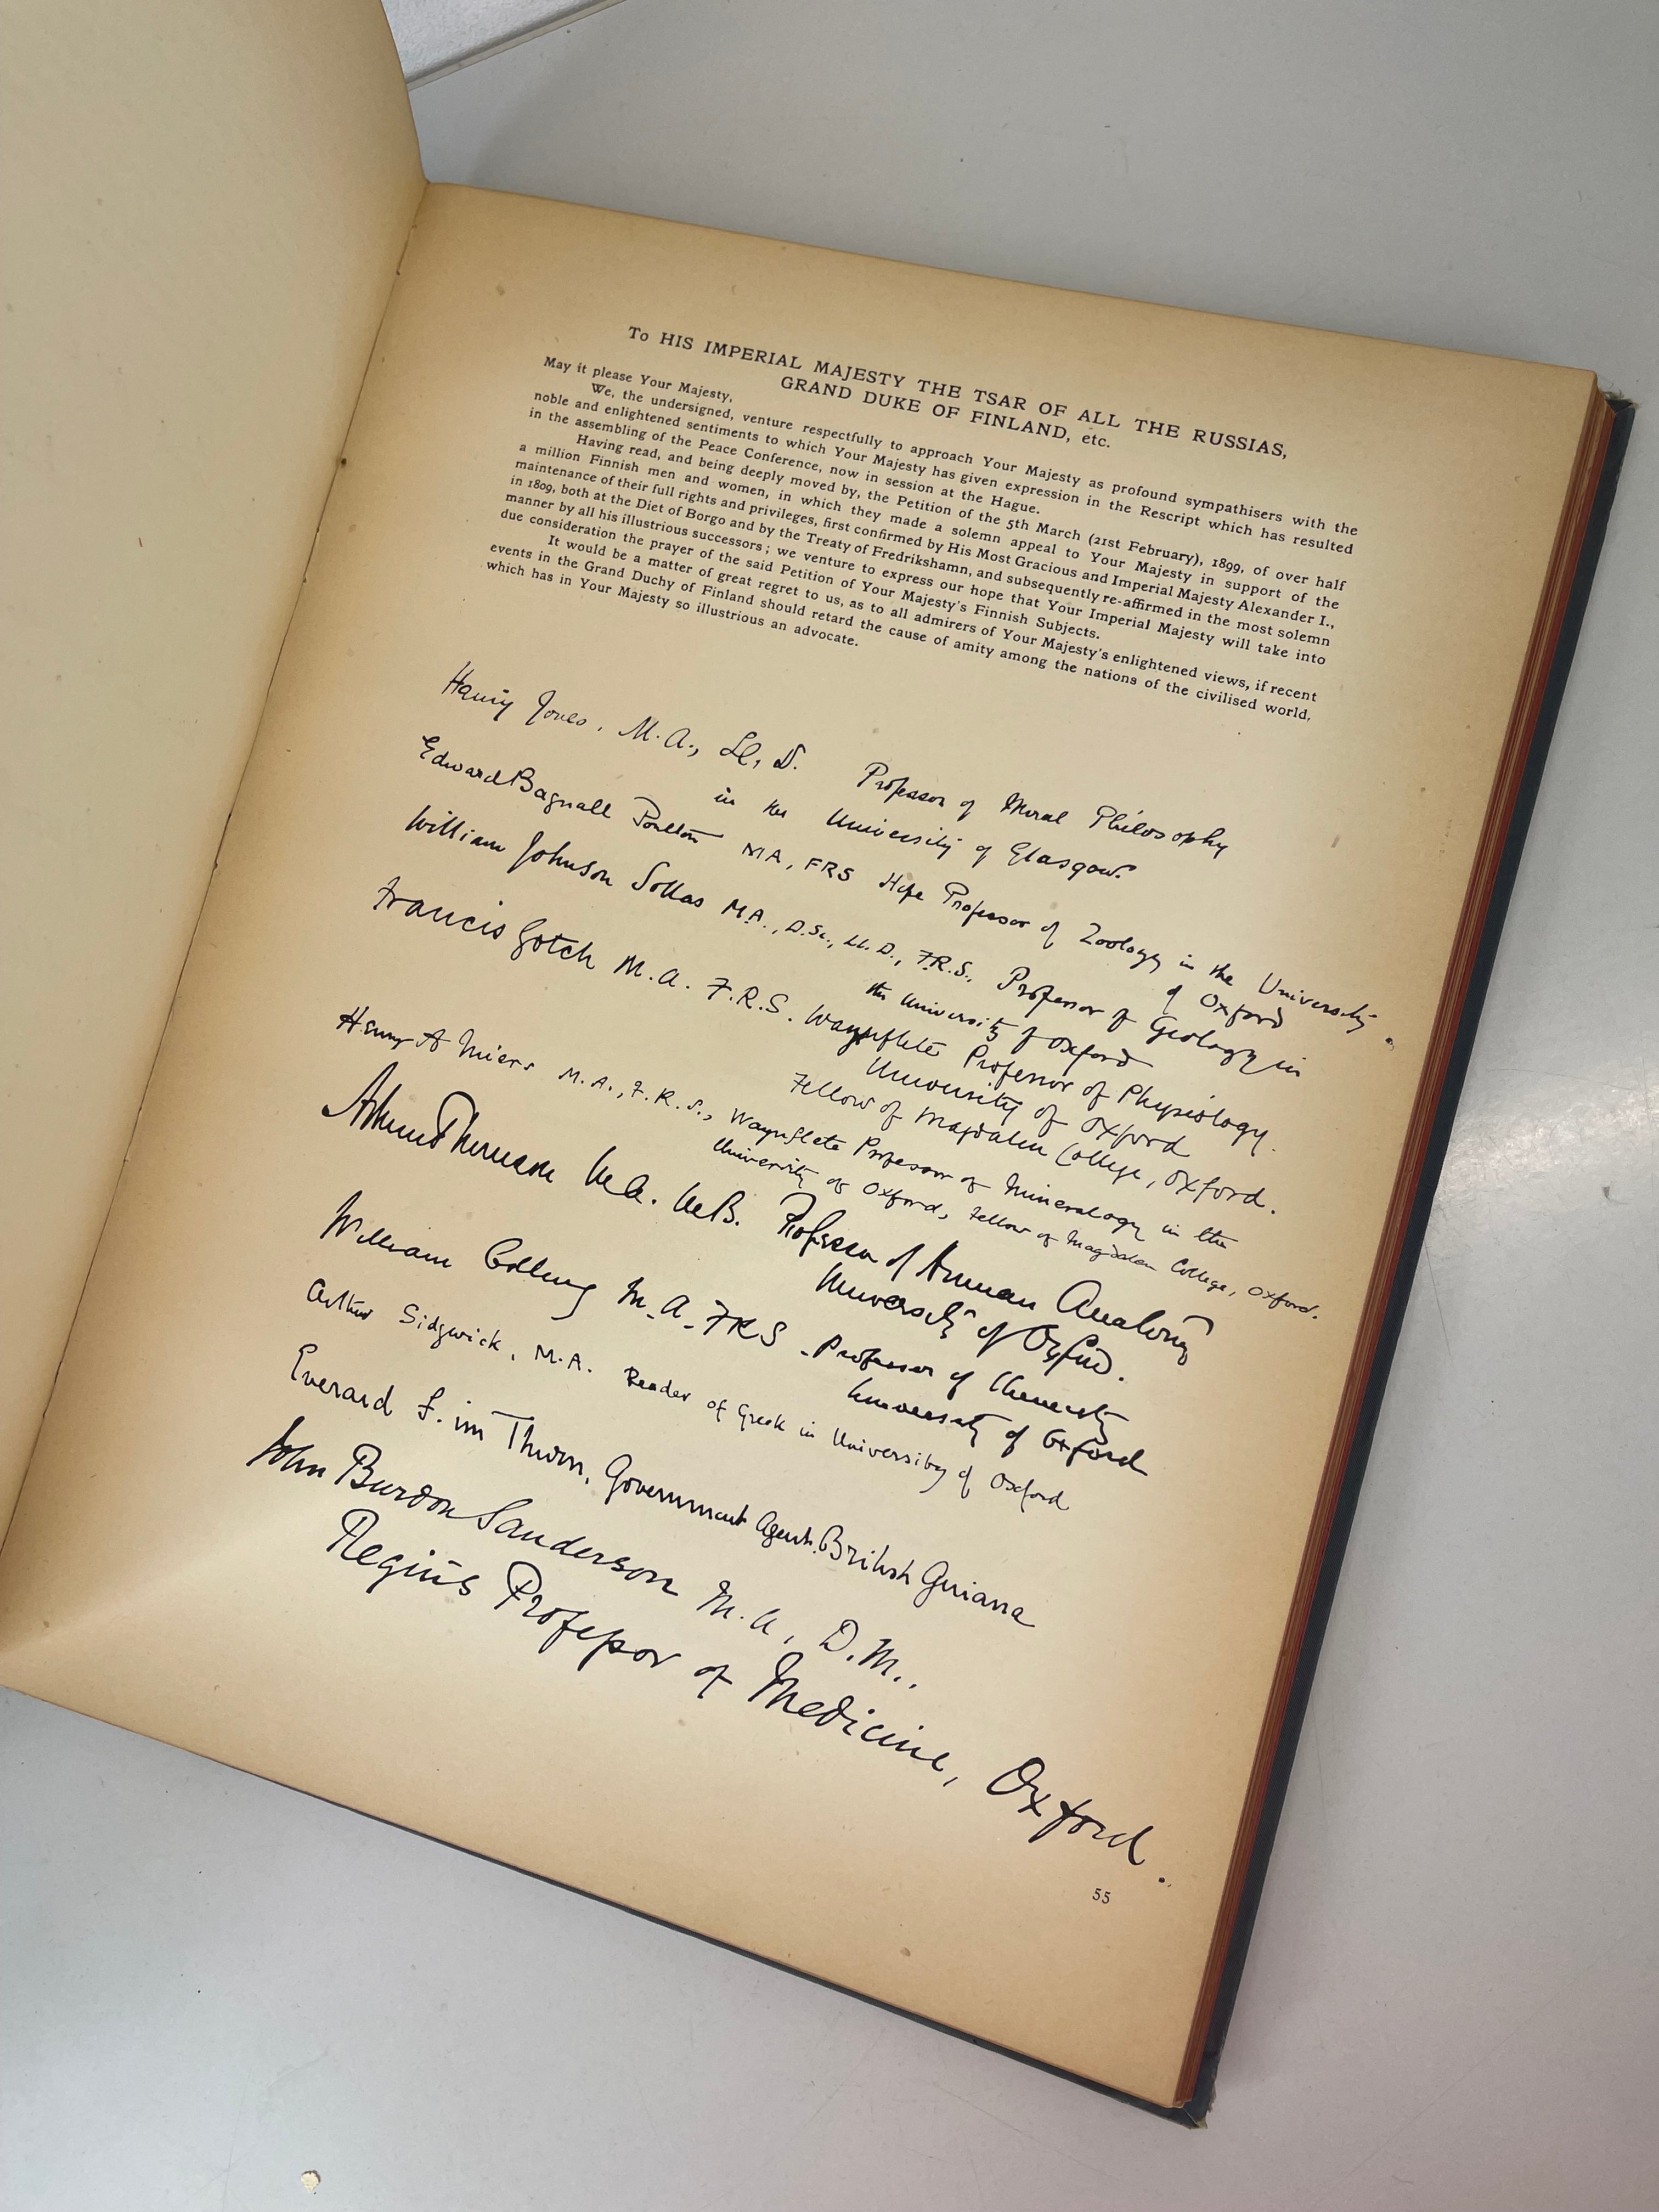 To HIS IMPERIAL MAJESTY THE TSAR OF ALL THE RUSSIAS,
GRAND DUKE OF FINLAND, etc.
May it please Your Majesty,
We, the undersigned, venture respectfully to approach Your Majesty as profound sympathisers with the
noble and enlightened sentiments to which Your Majesty has given expression in the Rescript which has resulted
in the assembling of the Peace Conference, now in session at the Hague.
Having read, and being deeply moved by, the Petition of the 5th March (21st February), 1899, of over half
a million Finnish men and women, in which they made a solemn appeal to Your Majesty in support of the
maintenance of their full rights and privileges, first confirmed by His Most Gracious and Imperial Majesty Alexander I.,
in 1809, both at the Diet of Borgo and by the Treaty of Fredrikshamn, and subsequently re-affirmed in the most solemn
manner by all his illustrious successors; we venture to express our hope that Your Imperial Majesty will take into
due consideration the prayer of the said Petition of Your Majesty's Finnish Subjects.
It would be a matter of great regret to us, as to all admirers of Your Majesty's enlightened views, if recent
events in the Grand Duchy of Finland should retard the cause of amity among the nations of the civilised world,
which has in Your Majesty so illustrious an advocate.
Henry Jones, M.A., LL.D. Professor of Moral Philosophy
in the University of Glasgow.
Edward Bagnall Poulton MA, FRS Hope Professor of Zoology in the University
of Oxford.
William Johnson Sollas M.A., D.Sc., LL.D., F.R.S., Professor of Geology in
the University of Oxford
Francis Gotch M.A. F.R.S. Waynflete Professor of Physiology.
University of Oxford
Fellow of Magdalen College, Oxford.
Henry A Miers M.A., F.R.S., Waynflete Professor of Mineralogy in the
University of Oxford, Fellow of Magdalen College, Oxford.
Arthur Thomson M.A. M.B. Professor of Human Anatomy
University of Oxford.
William Odling M.A. FRS. Professor of Chemistry
University of Oxford
Arthur Sidgwick, M.A. Reader of Greek in University of Oxford
Everard F. im Thurn, Government Agent. British Guiana
John Burdon Sanderson M.A, D.M.,
Regius Professor of Medicine, Oxford.
55